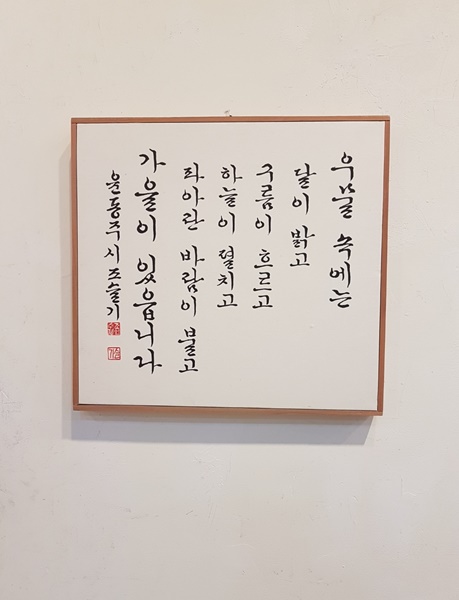 우물 속에는
달이 밝고
구름이 흐르고
하늘이 펼치고
파아란 바람이 불고
가을이 있읍니다
윤동주 시 조슬기